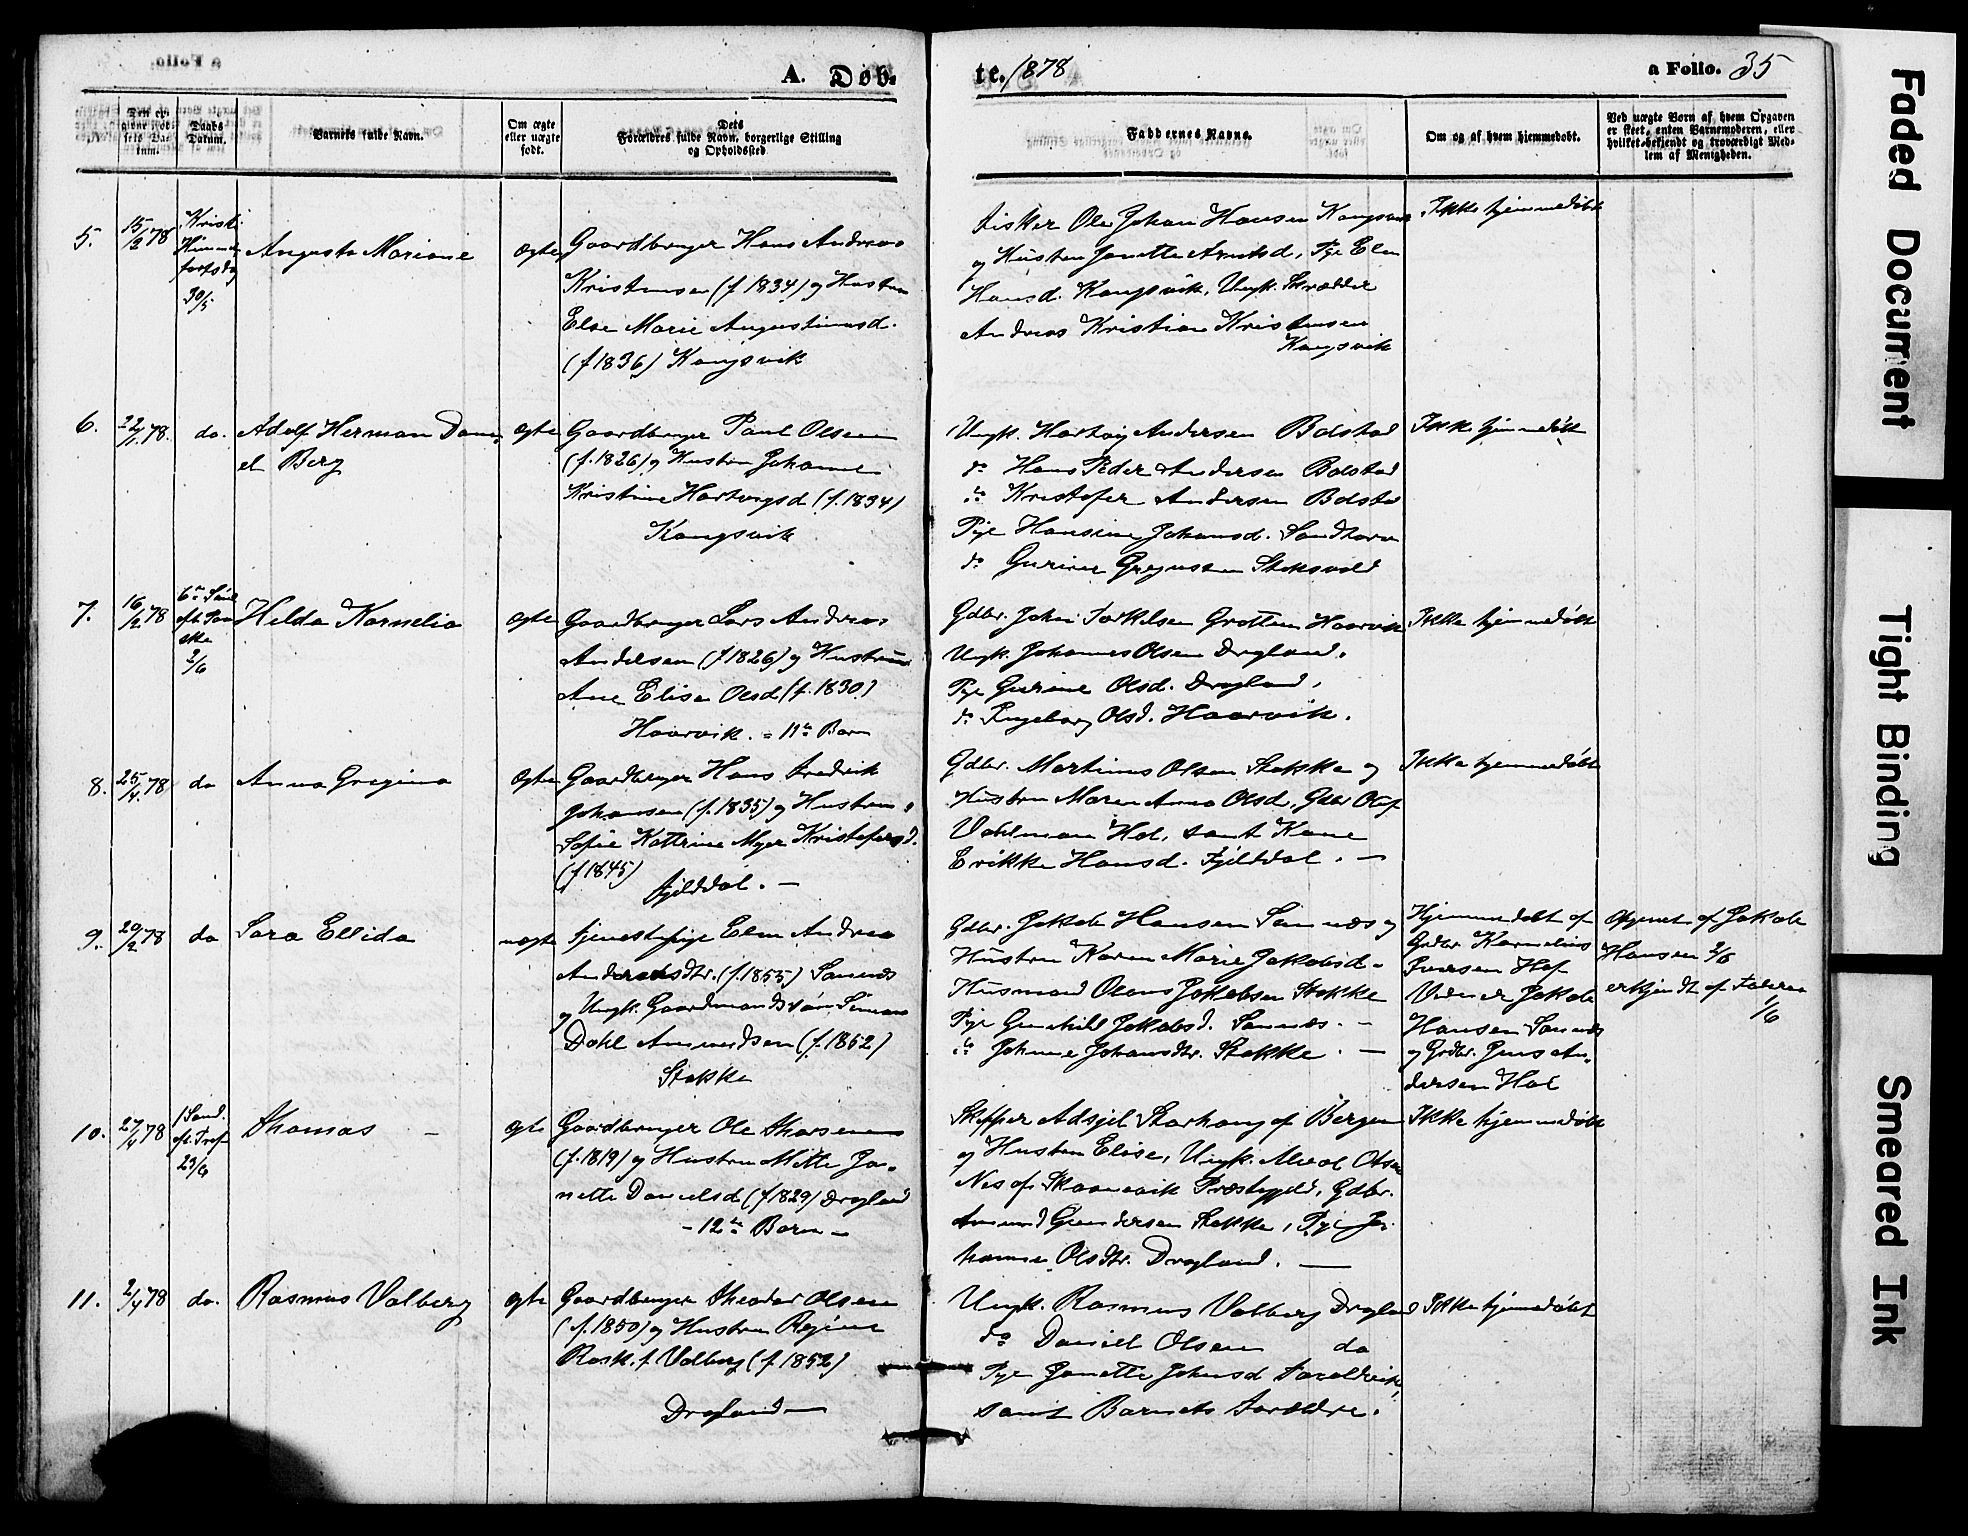 a Folio.
A. Døb-
te. 1878
a Folio. 35
Den opgivne Fødsels Datum.
Daabs Datum.
Barnets fulde Navn.
Om ægte eller uægte født.
Dets Forældres fulde Navn, borgerlige Stilling og Opholdssted
Faddernes Navne.
Om og af hvem hjemmedøbt.
Ved uægte Børn af hvem Opgaven er skeet, enten Barnemoderen, eller hvilket bekjendt og troværdigt Medlem af Menigheden.
5. 15/2 78 Kristi Himmelfartsdag 30/5
Augusta Marione
ægte
Gaardbruger Hans Andreas
Kristensen (f 1834) og Hustru
Else Marie Augustinusd.
(f 1836) Kongsvik
Fisker Ole Johan Hansen Kongsvik
og Hustru Janette Arntsd, Pige Elen
Hansd. Kongsvik, Ungk. Skrædder
Andreas Kristian Kristensen
Kongsvik
Ikke hjemmedøbt
6. 22/1 78. do.
Adolf Herman Dani-
el Berg
ægte
Gaardbruger Paul Olsen
(f. 1826) og Hustru Johanne
Kristine Hartvigsd (f. 1834)
Kongsvik
Ungk. Hartvig Andersen Bolstad
do Hans Peder Andersen Bolstad
do Kristofer Andersen Bolstad
Pige Hansine Johansd. Sandtorv
do Gurine
Ikke hjemmedøbt
7. 16/2 78 6te Sønd. eft. Paaske 2/6
Hilda Kornelia
ægte
Gaardbruger Lars Andreas
Andersen (f 1826) og Hustru
Ane Elisa Olsd (f. 1830)
Haarvik. - 11te Barn
Gdbr. Johan Torkelsen Grottem Haarvik
Ungk. Johannes Olsen Dragland.
Pige Gurine Olsd. Dragland,
do Ingeborg Olsd. Haarvik.
Ikke hjemmedøbt
8. 25/4 78 do
Anna Gregina
ægte
Gaardbruger Hans Fredrik
Johansen (f. 1835) og Hustru
Sofie Kattrine Myer Kristofersd.
(f 1845)
Fjelddal. -
Gdbr. Martinus Olsen Stokke og
Hustru Maren Anna Olsd, Gdbr Oluf
Vohlman Hol, samt Kone
Erikke Hansd. Fjelddal. -
Ikke hjemmedøbt
9. 20/2 78 do
Sara Elida
uægte
Tjenestepige Elen Andrea
Andersdtr. (f. 1855) Sannæs
og Ungk. Gaardmandssøn Simon
Dahl Amundsen (f. 1852)
Stokke
Gdbr. Jakob Hansen Sannæs og
Hustru Karen Marie Jakobsd -
Husmand Olaus Jakobsen Stokke
Pige Gunhild Jakobsd. Sannæs. -
do Johanne Johansdtr. Stokke. -
Hjemmedøbt af
Grdbr. Kornelius
Iversen Hol
Vidner Jakob
Hansen Sannæs
og Grdbr. Jens An-
dersen Hol
Opgivet af Jakob
Hansen 2/6
erkjendt af Faderen
1/6
10. 27/4 78 1 Sønd. ef. Tref. 23/6
Thomas -
ægte
Gaardbruger Ole Thorsen
(f. 1819) og Hustru Mette Ja-
nette Danielsd (f 1829) Dragland
- 12te Barn -
Skipper Adsjel Storhaug af Bergen
og Hustru Elise, Ungk.
Nes af Skaanevik Præstegjeld, Gdbr.
Amund Gundersen Stokke, Pige Jo-
hanne Olsdtr. Dragland. -
Ikke hjemmedøbt
11. 2/4 78 do.
Rasmus Valberg
ægte
Gaardbruger Theodor Olsen
(f. 1850) og Hustru Regine
Rask. f. Valberg (f 1852)
Dragland -
Ungk. Rasmus Valberg Dragland
do Daniel Olsen do
Pige Janette Johnsd
samt Barnets Forældre.
Ikke hjemmedøbt
Faded Document
Tight Binding
Smeared Ink